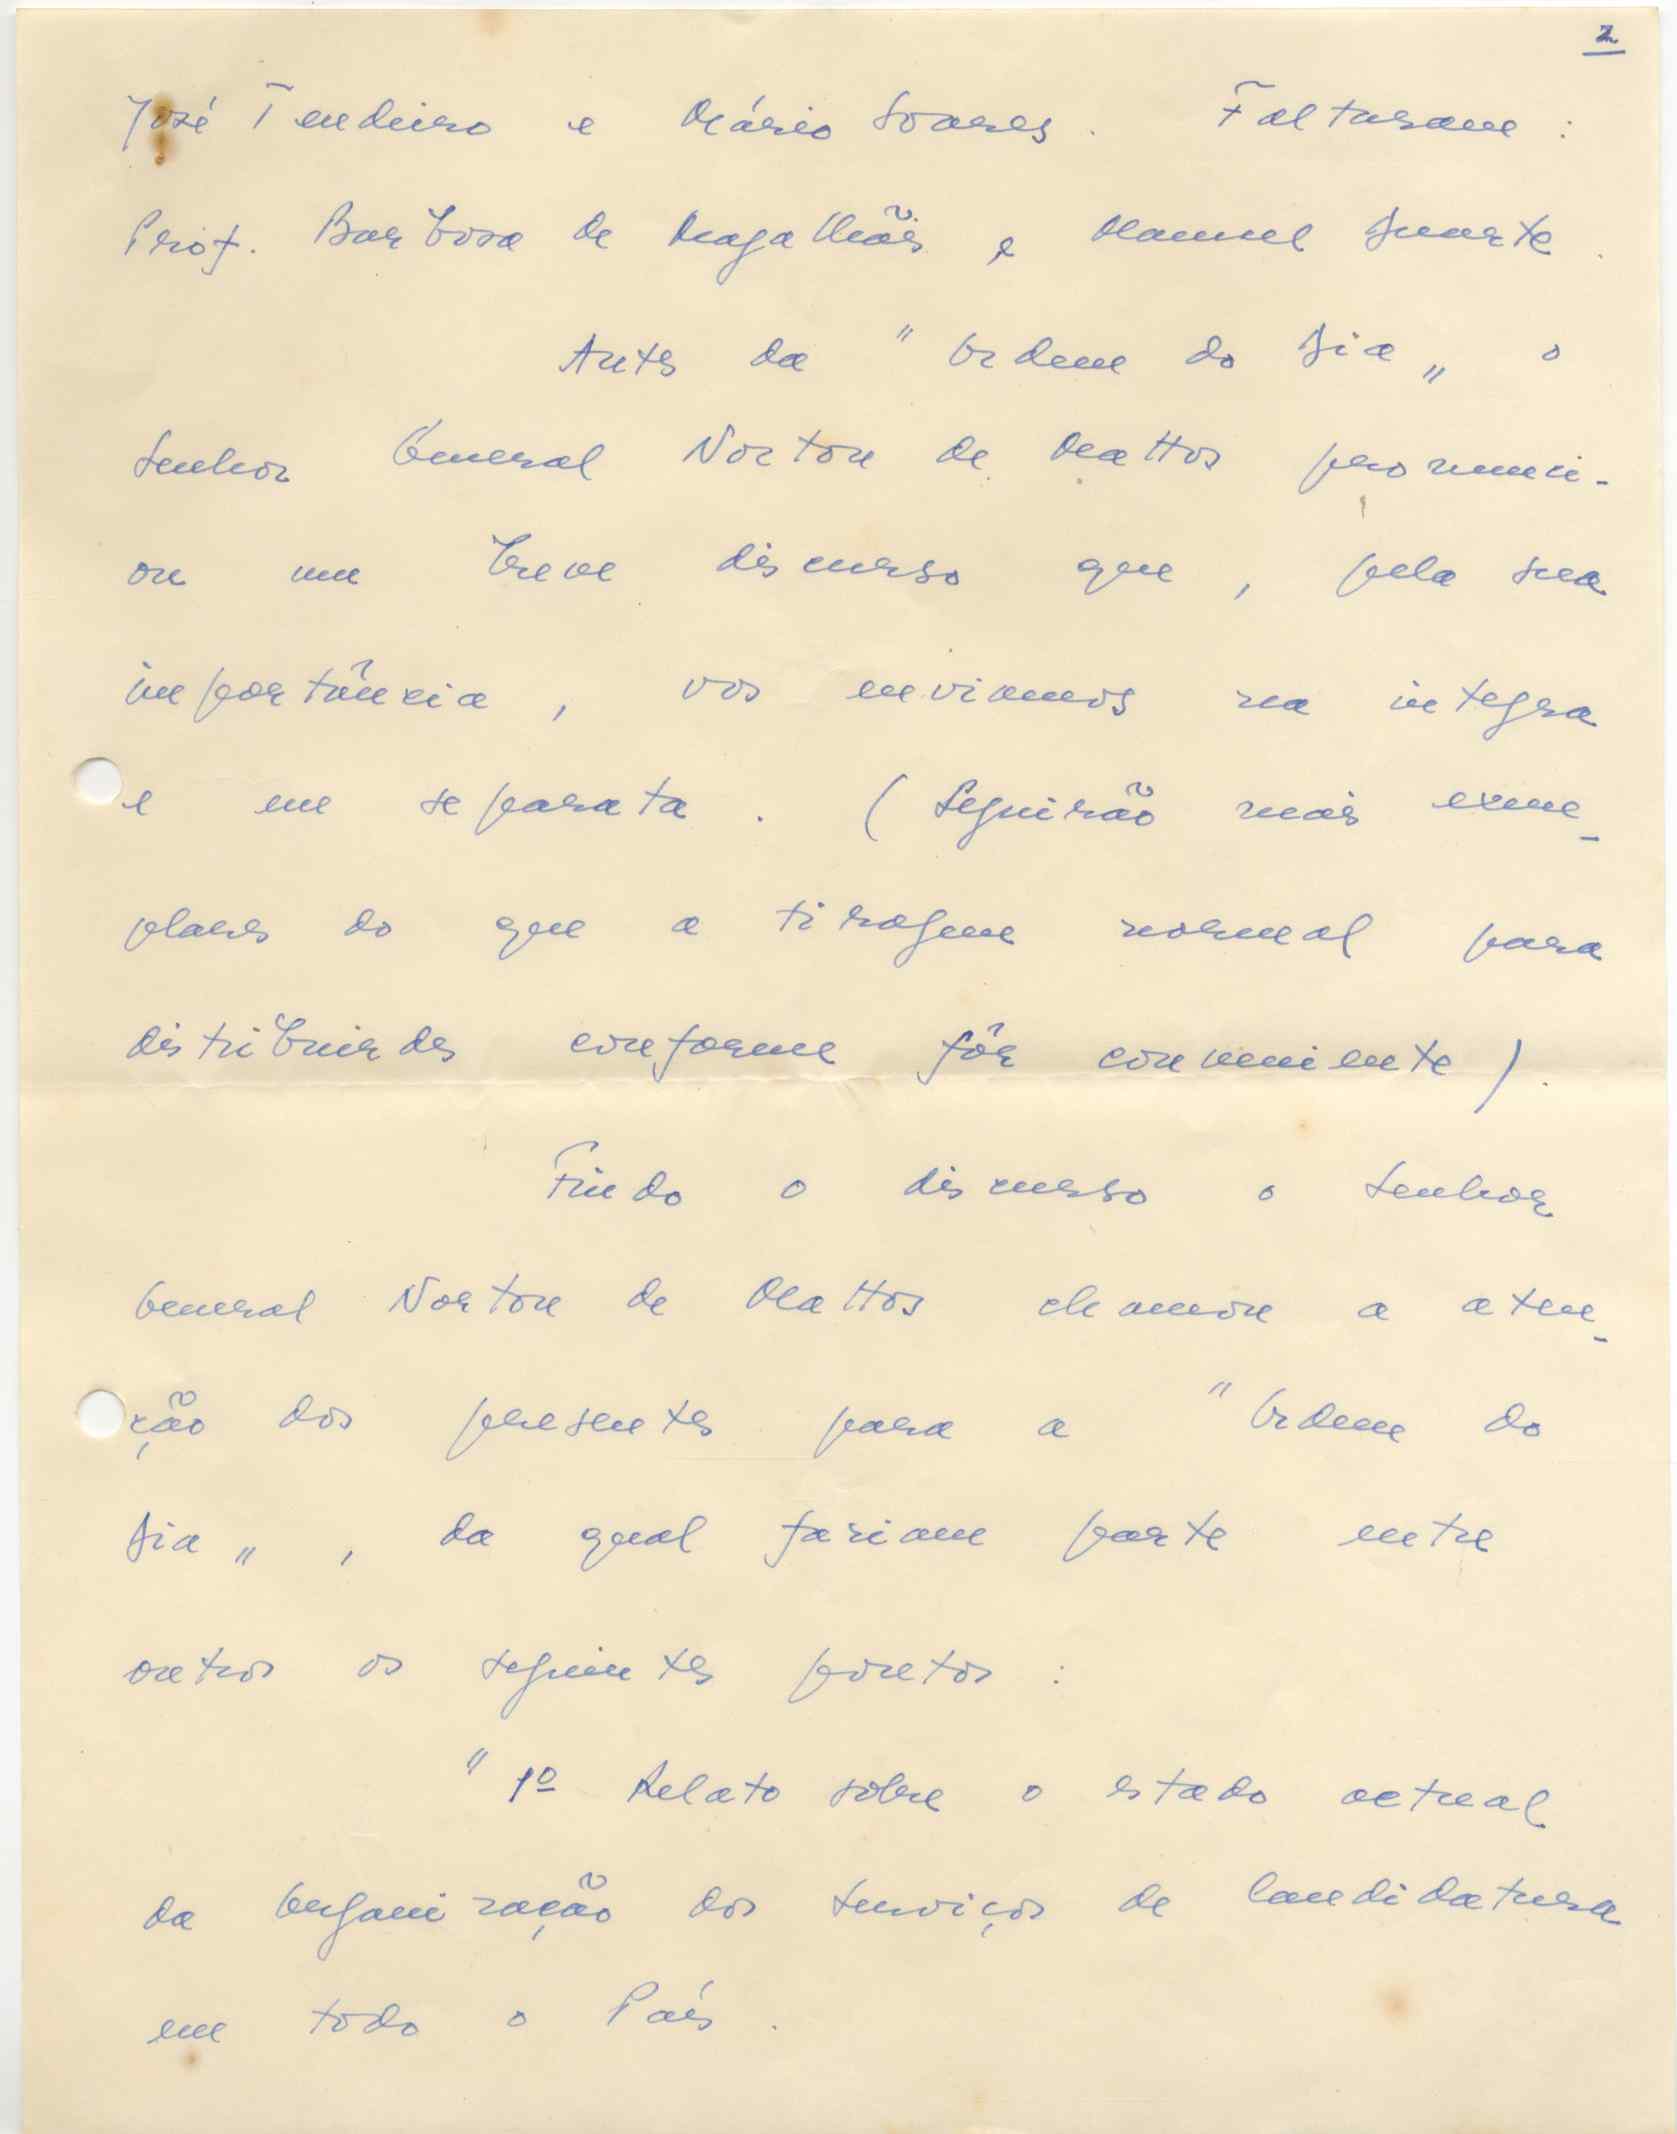 2
José Tendeiro e Mário Soares. Faltaram:
Prof. Barbosa de Magalhães e Manuel Duarte.
Antes da "Ordem do Dia„ o
Senhor General Norton de Mattos pronunci-
ou um breve discurso que, pela sua
importância, vos enviamos na integra
e em separata. (Seguirão mais exem-
plares do que a tiragem normal para
distribuirdes conforme fôr conveniente).
Findo o discurso o Senhor
General Norton de Mattos chamou a aten-
ção dos presentes para a "Ordem do
Dia„, da qual fariam parte entre
outros os seguintes pontos:
"1º Relato sobre o estado actual
da Organização dos Serviços de Candidatura
em todo o País.